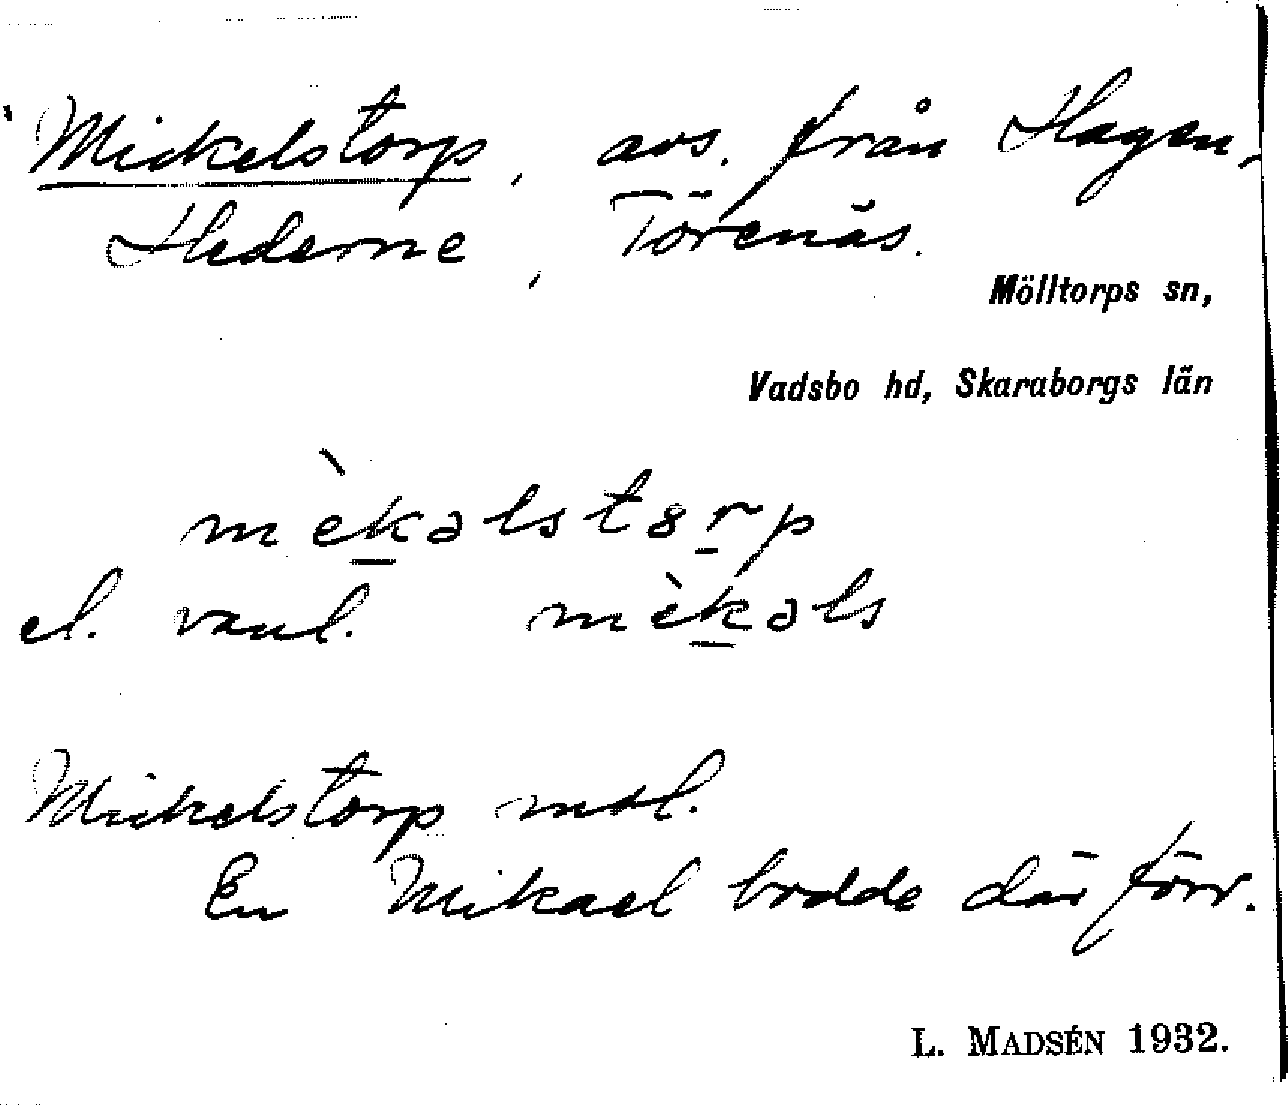 Mickelstorp, avs. från Hagen,
Hederne, Törenäs.
Mölltorps sn,
Vadsbo hd, Skaraborgs län
mèkəlstorp
el. vanl. mèkəls
Mickelstorp
En Mikael bodde där förr.
L. MADSÉN 1932.